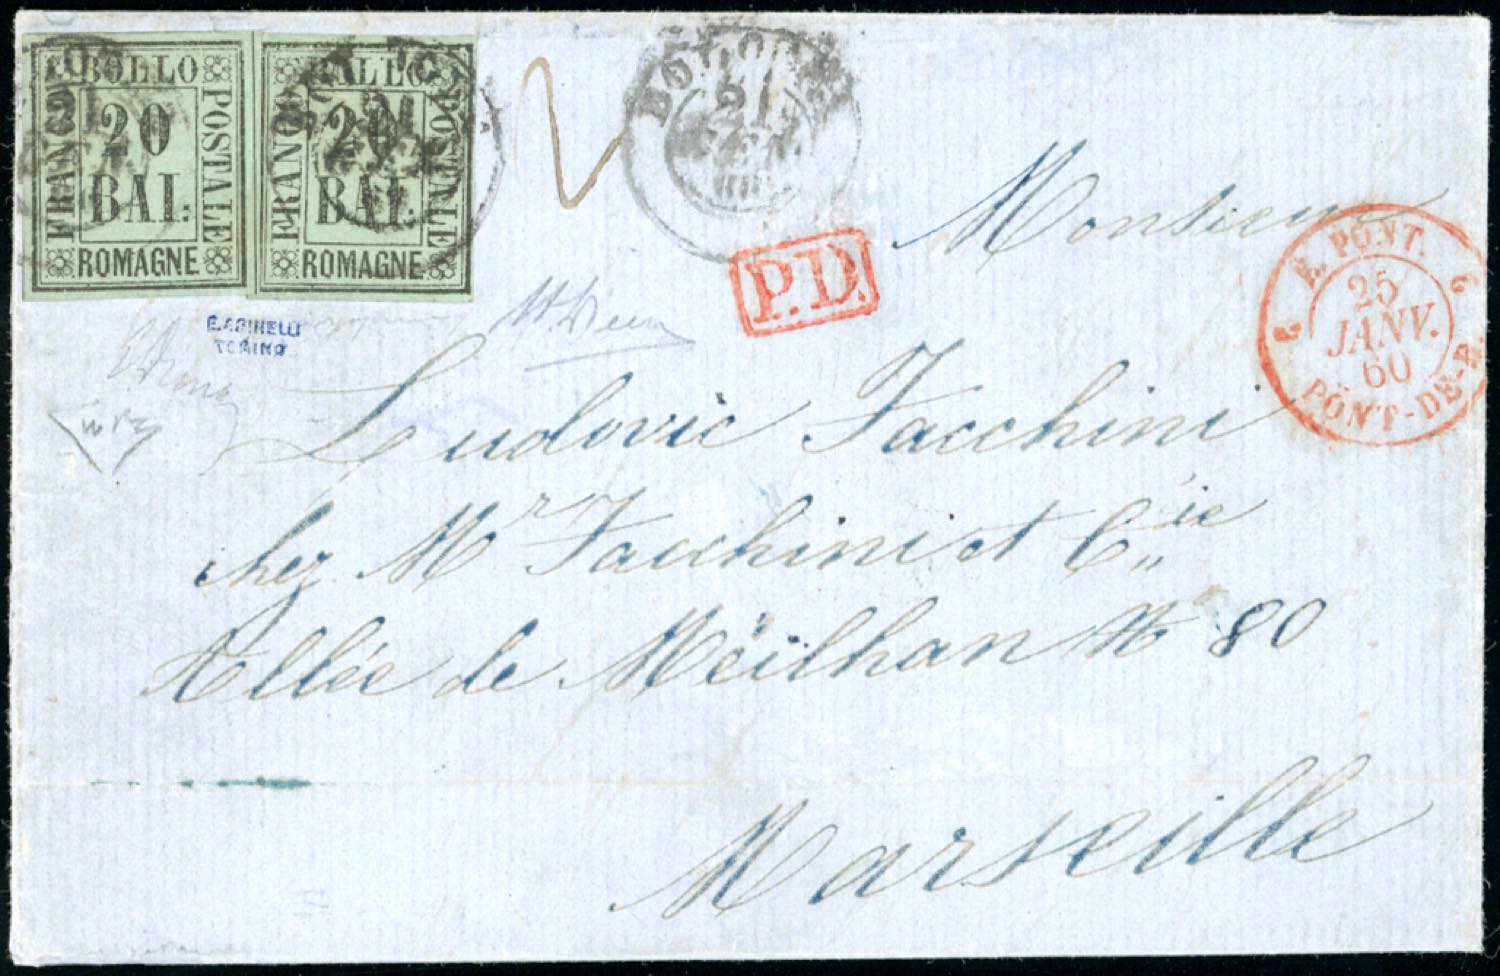 BOLLO
FRANCO
POSTALE
20
BAI:
ROMAGNE
FRANCO
POSTALE
20
BAI:
ROMAGNE
2
BOLOGNA
21
P.D.
E. PONT.
25
JANV.
60
PONT-DE-B.
TORINO
Monsieur
Ludovic Facchini
chez Mr Facchini et Cie
Allée de Méilhan No 80
Marseille